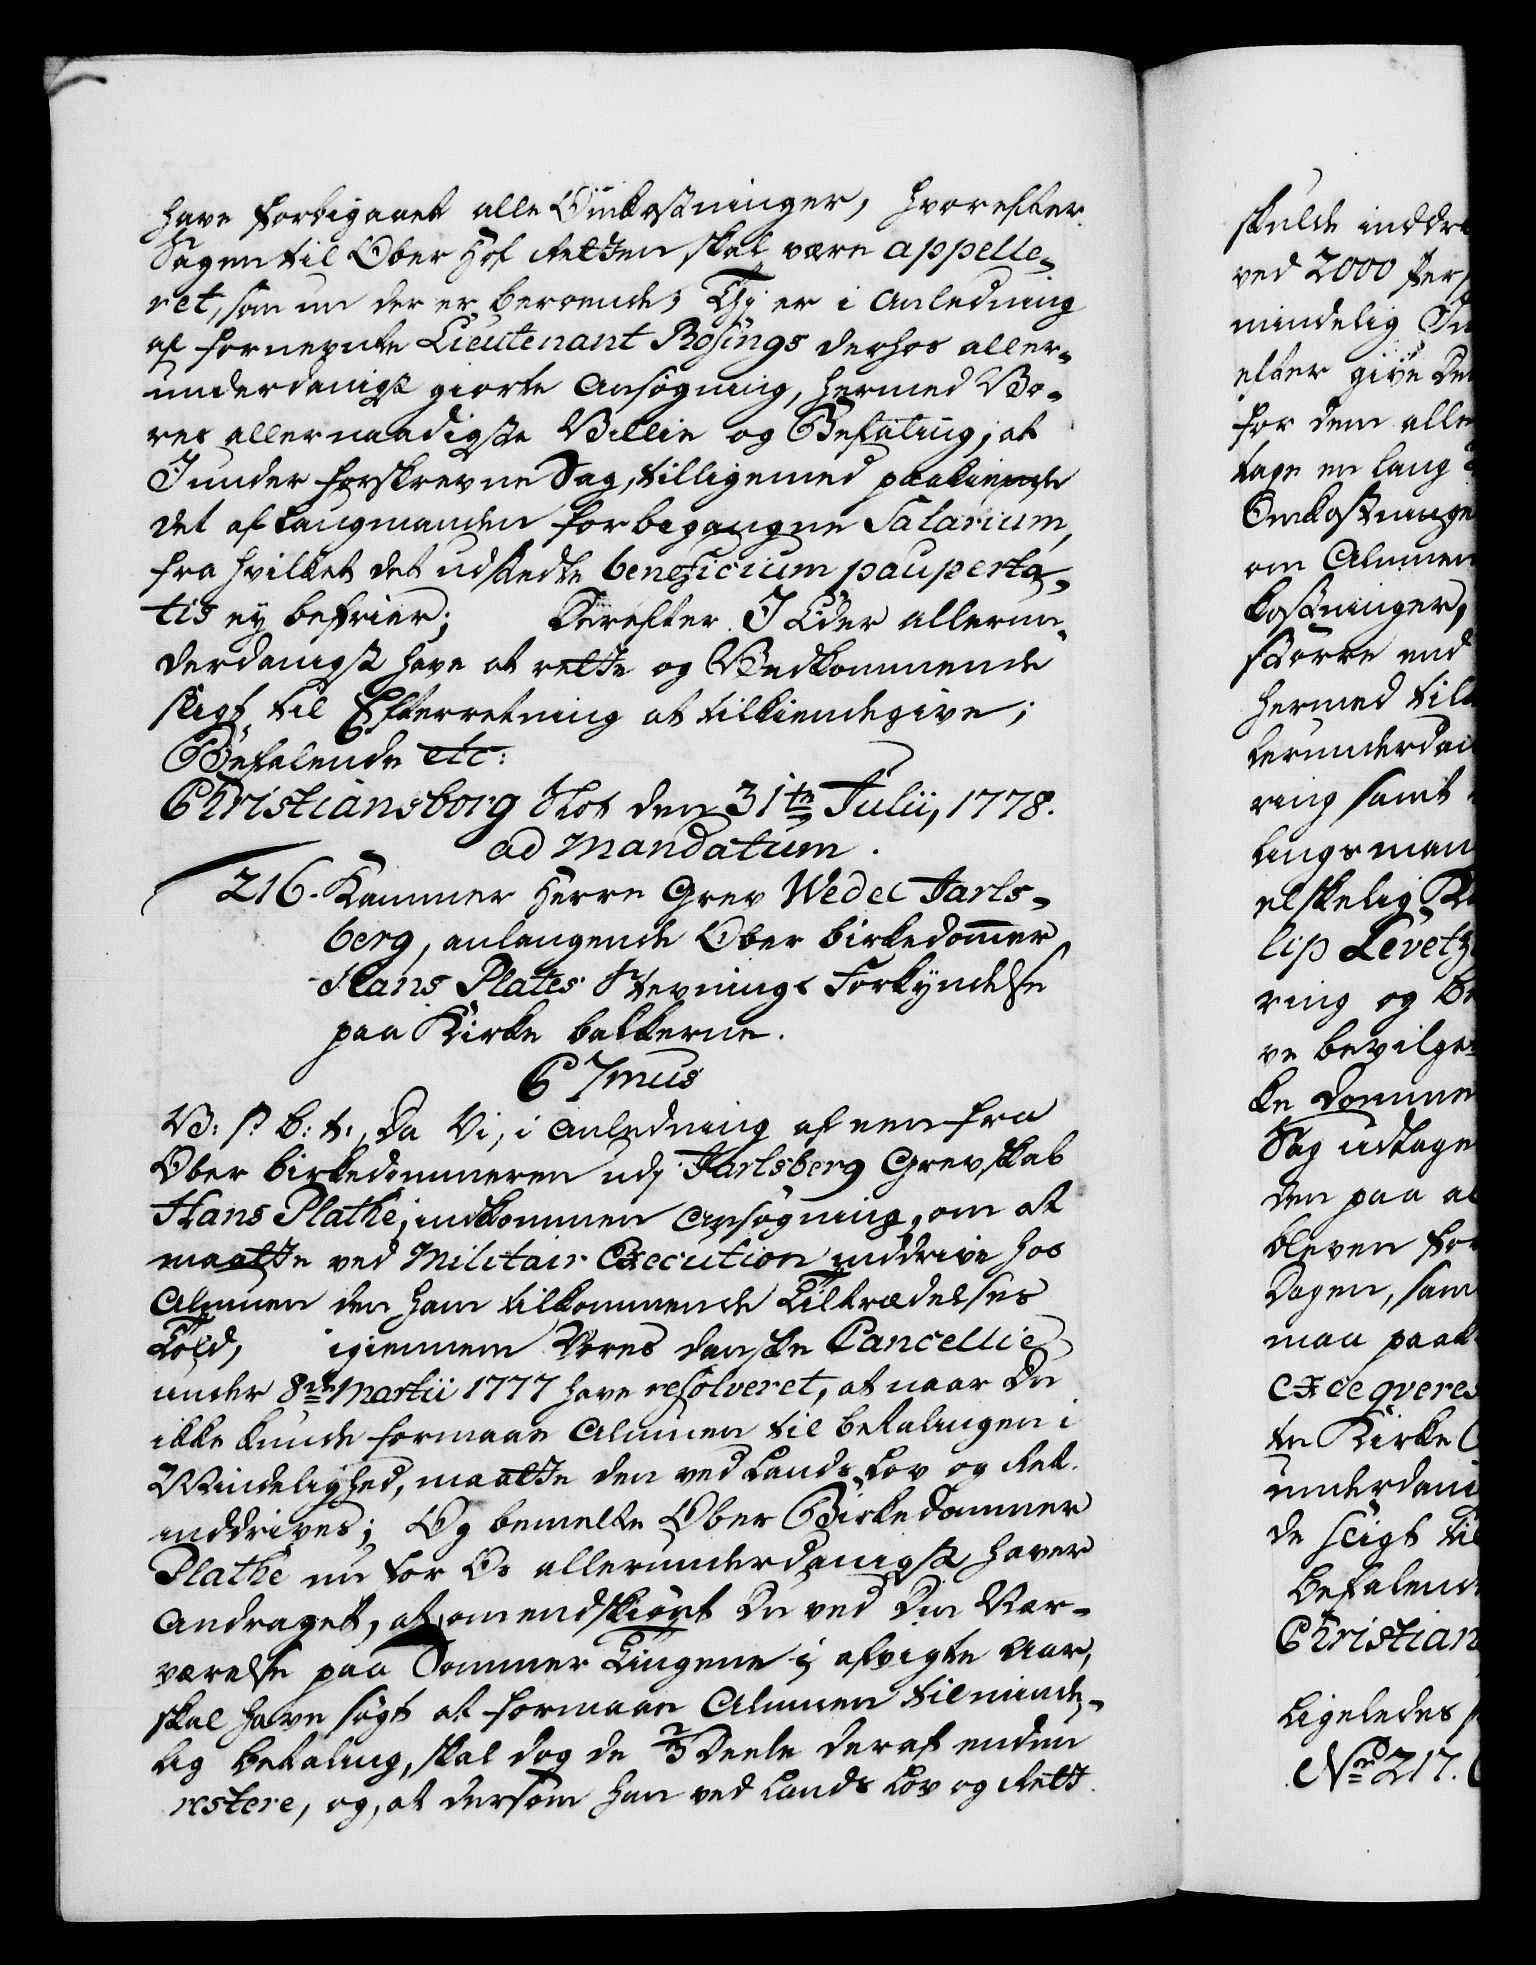 have forbigaaet alle Omkostninger, hvorefter
Sagen til Ober Hof Retten skal være appelle-
ret, som nu der er beroende; Thi er i Anledning
af fornevnte Lieutenant Rosings derhos aller-
underdanigst giorte Ansøgning, hermed Vo-
res allernaadigste Villie og Befaling, at
I under forskrevne Sag, tilligemed paakiende
det af Laugmanden forbegangne Salarium,
fra hvilket det udstedte beneficium pauperta-
tis ey befrier; Derefter I Eder allerun-
derdanigst have at rette og Vedkommende
sligt til Efterretning at tilkiendegive;
Befalende etc:
Christiansborg Slot den 31te Julii, 1778.
ad Mandatum.
216. Kammer Herre Grev Wedel Jarls-
berg, anlangende Ober birkedommer
Hans Plates Stevnings Forkyndelse
paa Kirke bakkerne.
C 7mus
V: S: b: t:, Da Vi, i Anledning af en fra
Ober birkedommeren udj Jarlsberg Grevskab
Hans Plathe, indkommen Ansøgning, om at
maatte ved Militair Execution inddrive hos
Almuen den ham tilkommende Tiltrædelses
Told, igiennem Vores danske Cancellie
under 8de Martii 1777 have resolveret, at naar Du
ikke kunde formaae Almuen til betalingen i
Mindelighed, maatte den ved Lands Lov og Ret
inddrives; Og bemelte Ober Birkedommer
Plathe nu for Os allerunderdanigst haver
Andraget, at, omendskiønt Du ved Din Nær-
værelse paa Sommer Tingene i afvigte Aar,
skal have søgt at formaae Almuen til minde-
lig betaling, skal dog de 2/3 Deele deraf endnu
restere, og, at dersom han ved Lands Lov og Rett
skulde inddr
ved 2000 Per
mindelig In
efter give De
for dem alle
tage en lang
Omkostninge
om Almuen
kostninger,
større end
hermed till
lerunderdan
ring samt
lingsman
elskelig
lip Levetz
ring og be
ve bevilge
ke domme
Sag udtage
den paa al
bleven for
Dagen, sam
maa paak
exeqveres
te Kirke
underdani
de sligt til
befalend
Christian
Ligeledes
No 217.